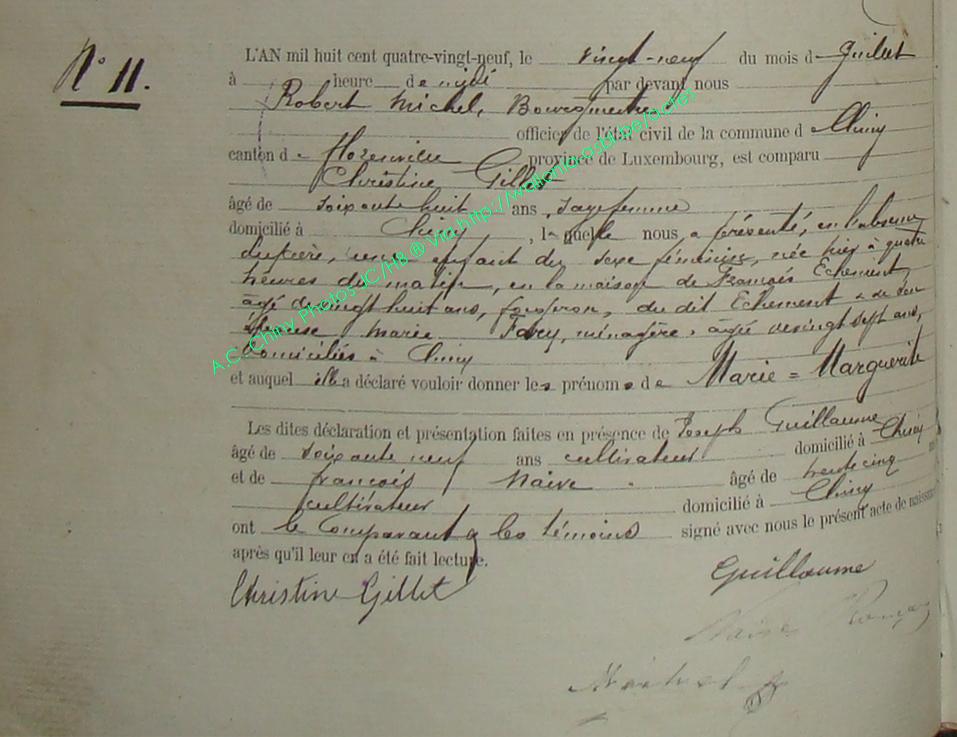 N° 11.
L'AN mil huit cent quatre-vingt-neuf, le vingt-neuf du mois d Juillet
à heure de midi par devant nous
Robert Michel, Bourgmestre
officier de l'état civil de la commune d Chiny
canton de Florenville province de Luxembourg, est comparu
Christine Gillet
âgé de soixante huit ans, sage femme
domicilié à Chiny, laquelle nous a présenté, en l'absence
du père, un enfant du sexe féminin, née hier à quatre
heures du matin, en la maison de François Echement,
âgé de vingt huit ans, forgeron, du dit Echement & de son
épouse Marie Favry, ménagère, âgée de vingt sept ans,
domiciliés à Chiny
et auquel elle a déclaré vouloir donner les prénoms de Marie = Marguerite
Les dites déclaration et présentation faites en présence de Joseph Guillaume
âgé de soixante neuf ans cultivateur domicilié à Chiny
et de François Naive âgé de trente cinq
cultivateur domicilié à Chiny
ont le comparant & les témoins signé avec nous le présent acte de naissance
après qu'il leur en a été fait lecture.
Christine Gillet Guillaume
Naive François
Michel
A.C. Chiny Photos JC/HB ® Via http://wallonica.asbl.be/actes